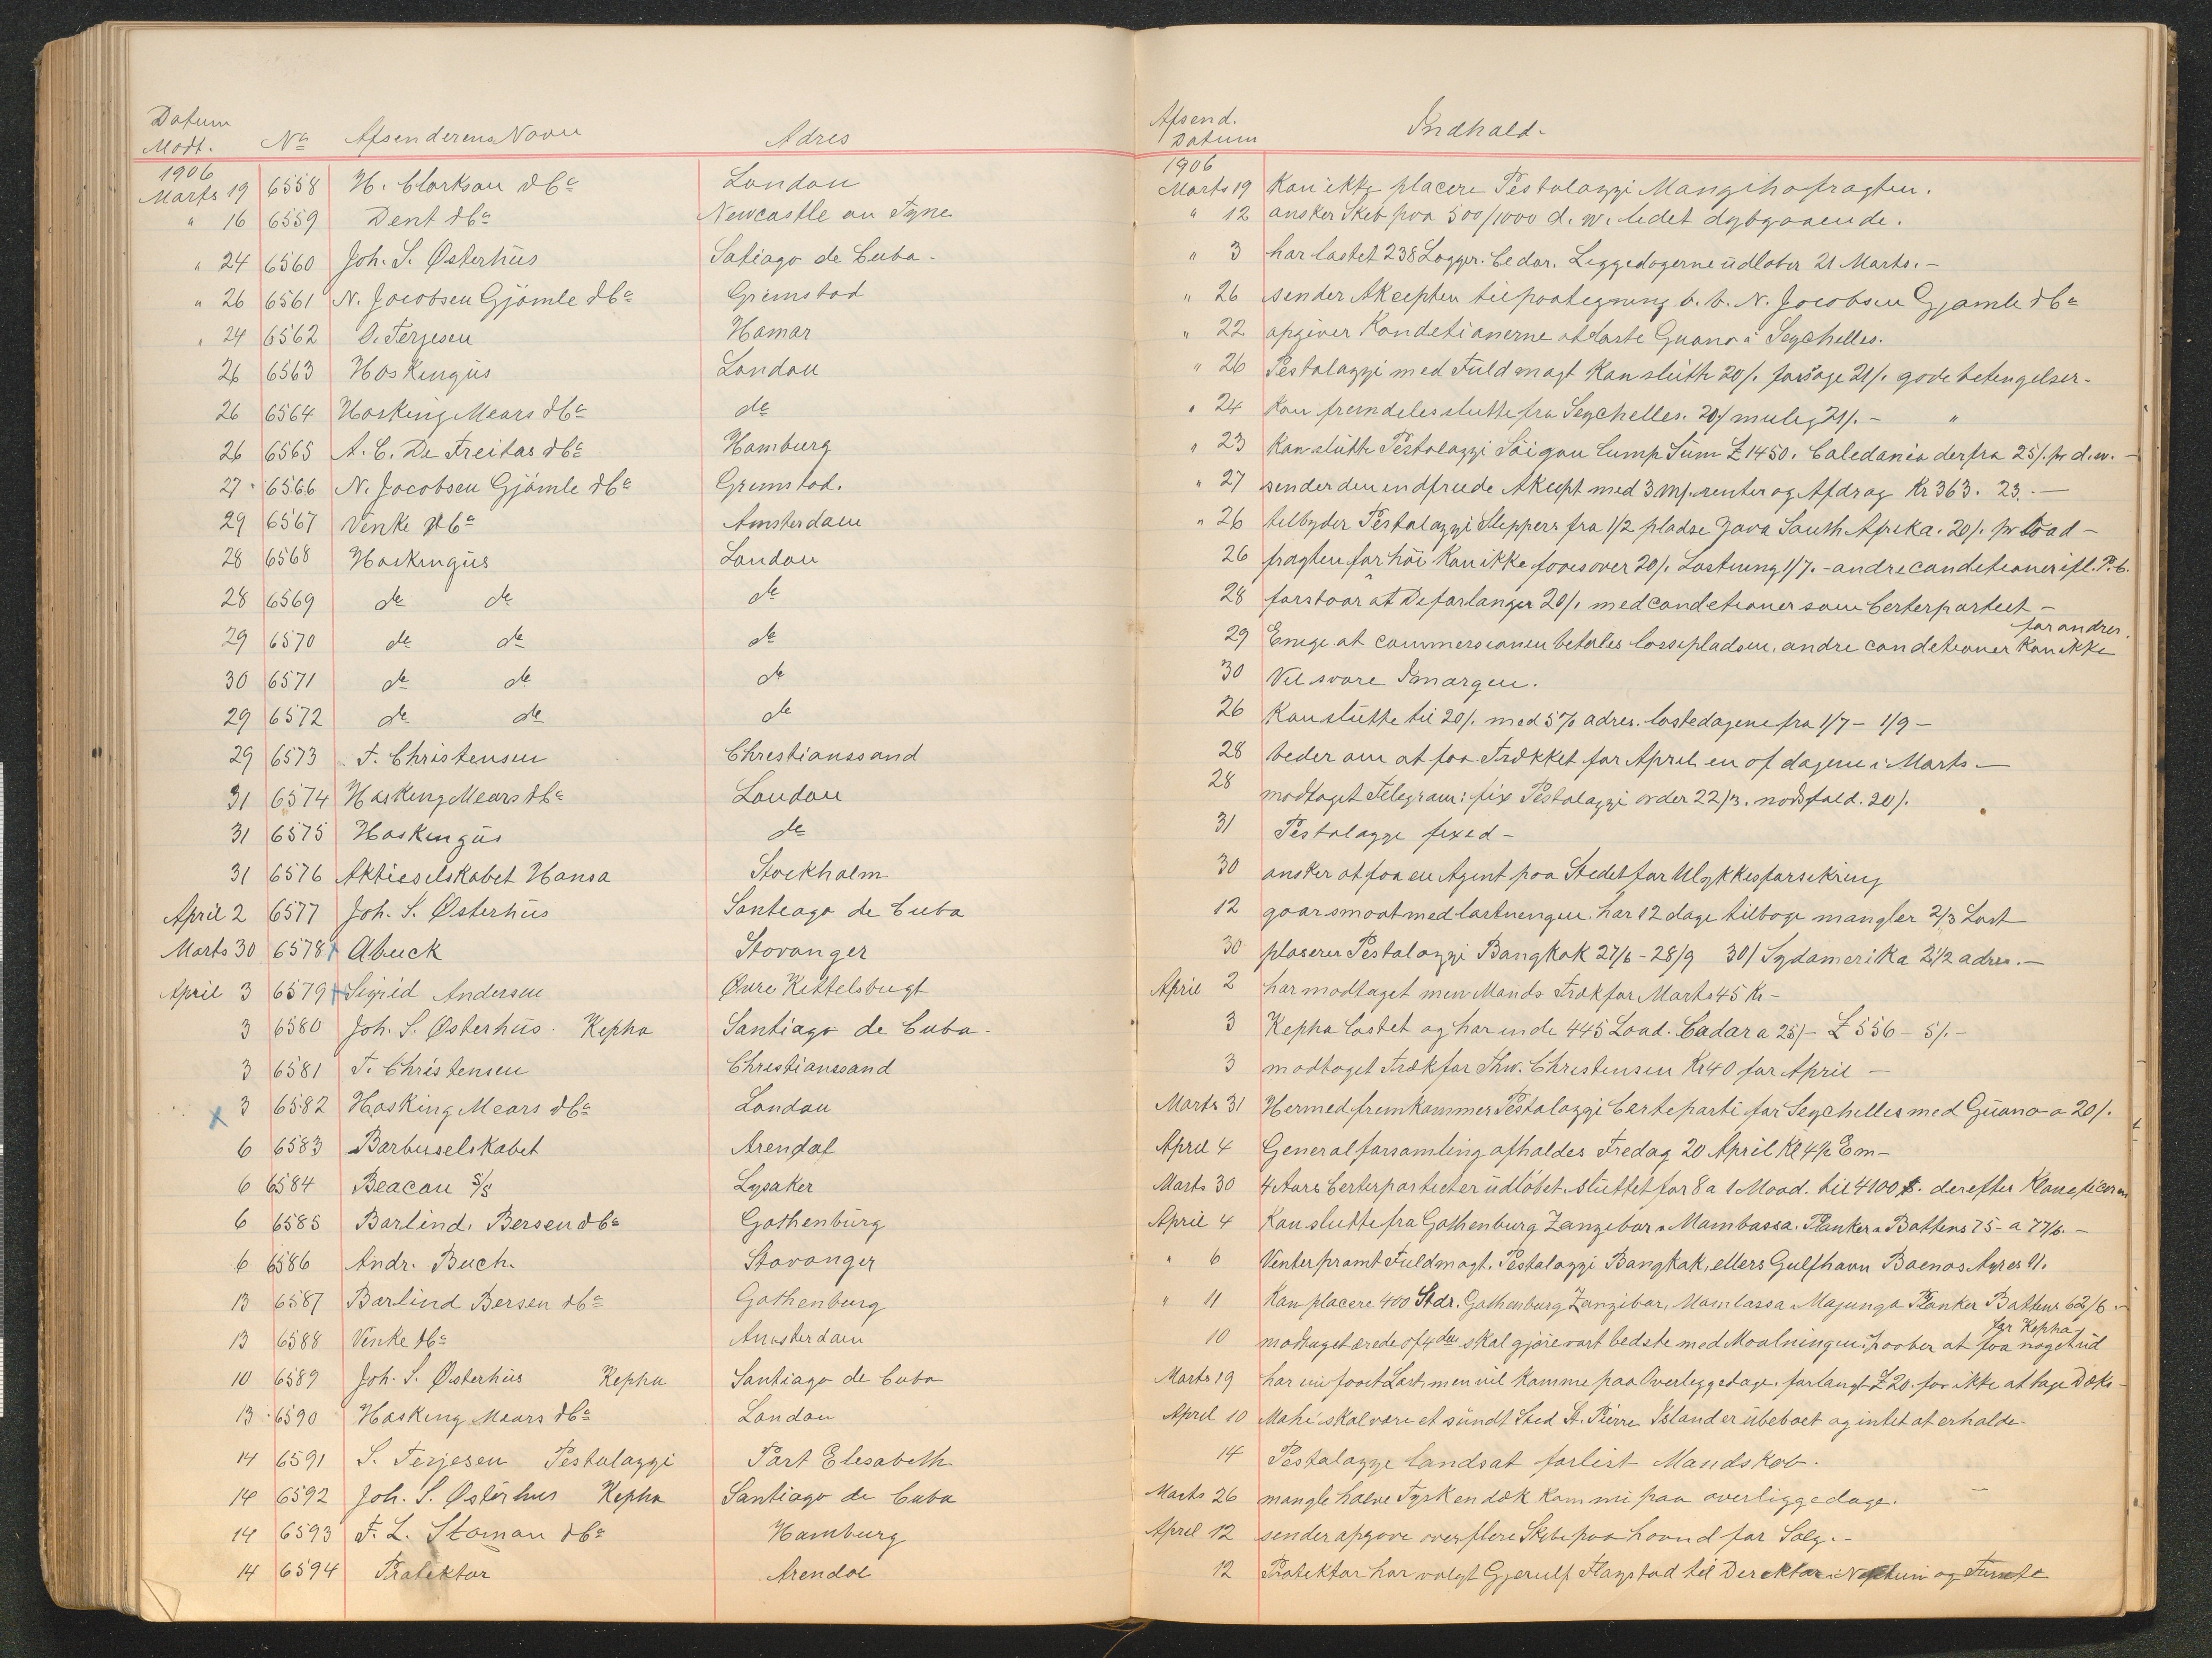 Datum Modt. No Afsenderens Navn Adres Afsend. Datum Indhold.
1906 1906
Marts 19 6558 H. Clarkson & Co London Marts 19 Kan ikke placere Pestalozzi Mangihafragten.
" 16 6559 Dent & Co Newcastle on Tyne " 12 ønsker Skib paa 500/1000 d. w. lidet dybgaaende.
" 24 6560 Joh. S. Østerhüs Satiago de Cuba - " 3 har lastet 238 Logger. Cedar. Liggedagerne üdløber 21 Marts. -
" 26 6561 N. Jacobsen Gjömle & Co Grimstad " 26 sender Akcepten til paategning b. b. N. Jacobsen Gjømle & Co
" 24 6562 S. Terjesen Hamar " 22 opgiver Kondetionerne at laste Guano i Seychelles.
26 6563 Hoskingüs London " 26 Pestalozzi med Füldmagt Kan slütte 20/. forsøge 21/. gode betengelser -
26 6564 Hosking Mears & Co do " 24 Kan fremdeles slutte fra Seychelles. 20/ mulig 21/. - "
26 6565 A. C. De Freitas & Co Hamburg " 23 Kan slütte Pestalozzi Säigon Lump Süm £1450. Caledonia derfra 25/. pr d.w. -
27 6566 N. Jacobsen Gjömle & Co Grimstad. " 27 sender den indfriede Akcept med 3 m/. renter og Afdrag Kr 363. 23. -
29 6567 Vinke & Co Amsterdam " 26 tilbyder Pestalozzi Sleppers fra 1/2 pladse Java South Afrika. 20/. pr Load -
28 6568 Hoskingüs London 26 fragten for höi Kan ikke faaes over 20/. Lastning 1/7. - andre condetioner ifl. P. C.
28 6569 do do do 28 forstaar at De forlanger 20/. med condetioner som Certepartiet -
29 6570 do do do 29 Enige at commerssionen betales lossepladsen, andre condetioner Kan ikke forandres.
30 6571 do do do 30 Vil svare Imorgen.
29 6572 do do do 26 Kan slütte til 20/. med 5% adres. lastedagene fra 1/7 - 1/9 -
29 6573 F. Christensen Chrestianssand 28 beder om at faa Trækket for April en af dagene i Marts -
31 6574 Hosking Mears & Co London 28 modtaget Telegram: fix Pestalozzi order 22/3. nødsfald. 20/.
31 6575 Hoskingüs do 31 Pestalozze fixed -
31 6576 Aktieselskabet Hansa Stockholm 30 ønsker at faa en Agent paa Stedet for Ulykkesforsikring
April 2 6577 Joh. S. Østerhüs Santeago de Cuba 12 gaar smaat med lastnengen. har 12 dage tilbage mangler 2/3 Last
Marts 30 6578 Abuck Stavanger 30 plaserer Pestalozzi Bangkok 27/6 - 28/9 30/ Sydamerika 2 1/2 adres. -
April 3 6579 Sigrid Andersen Øvre Kittelsbugt April 2 har modtaget men Mands Træk for Marts 45 Kr -
3 6580 Joh. S. Østerhüs. Kepha Santiago de Cuba - 3 Kepha lastet og har inde 445 Load. Cadar a 25/- £556 - 5/. -
3 6581 F. Christensen Christianssand 3 modtaget Træk for Thv. Christensen Kr 40 for April -
3 6582 Hosking Mears & Co London Marts 31 Hermed fremkommer Pestalozzi Certeparti for Seychelles med Güano a 20/.
6 6583 Barbuselskabet Arendal April 4 Generalforsamling afholdes Fredag 20 April Kl 4 1/2 Em -
6 6584 Beacon S/S Lysaker Marts 30 4 Aars Certepartiet er üdløbet. Slüttet for 8 a 1 Maad. til 4100 $. derefter
6 6585 Barlind, Bersen & Co Gothenbürg April 4 Kan slutte fra Gothenburg Zanzibar a Mambassa. Planker a Battens 75 - a 77/6. -
6 6586 Andr. Buch. Stavanger " 6 Venter promt Füldmagt. Pestalozzi Bangkok, ellers Gulfhavn Buenos Ayres 11.
13 6587 Barlind Bersen & Co Gothenburg " 11 Kan placere 400 Stdr. Gothenburg Zanzibar, Mambassa Majunga Planker Battens 62/6. -
13 6588 Vinke & Co Amsterdam 10 modtaget ærede af 4de skal gjøre vort bedste med Maalningen, haaber at faa noget üd for Kepha
10 6589 Joh. S. Østerhüs Kepha Santiago de Cuba Marts 19 har ei faaet Last, men vil komme paa Overleggedage. forlangt £20. for ikke at tage Dæks -
13 6590 Hosking Mears & Co London April 10 Mahé skal være et sündt Sted St. Pierre Island er übeboet og intet at erholde -
14 6591 S. Terjesen Pestalozzi Port Elesabeth 14 Pestalozze landsat forlist Mandskab.
14 6592 Joh. S. Østerhus Kepha Santiago de Cuba Marts 26 mangle halve Tyrk en dæk kom nu paa overliggedage. -
14 6593 F. L. Sloman & Co Hamburg April 12 sender opgave over flere Skibe paa haand for Salg. -
14 6594 Protektor Arendal 12 Protektor har valgt Gjerulf Flagstad til Derektør i Neptun og